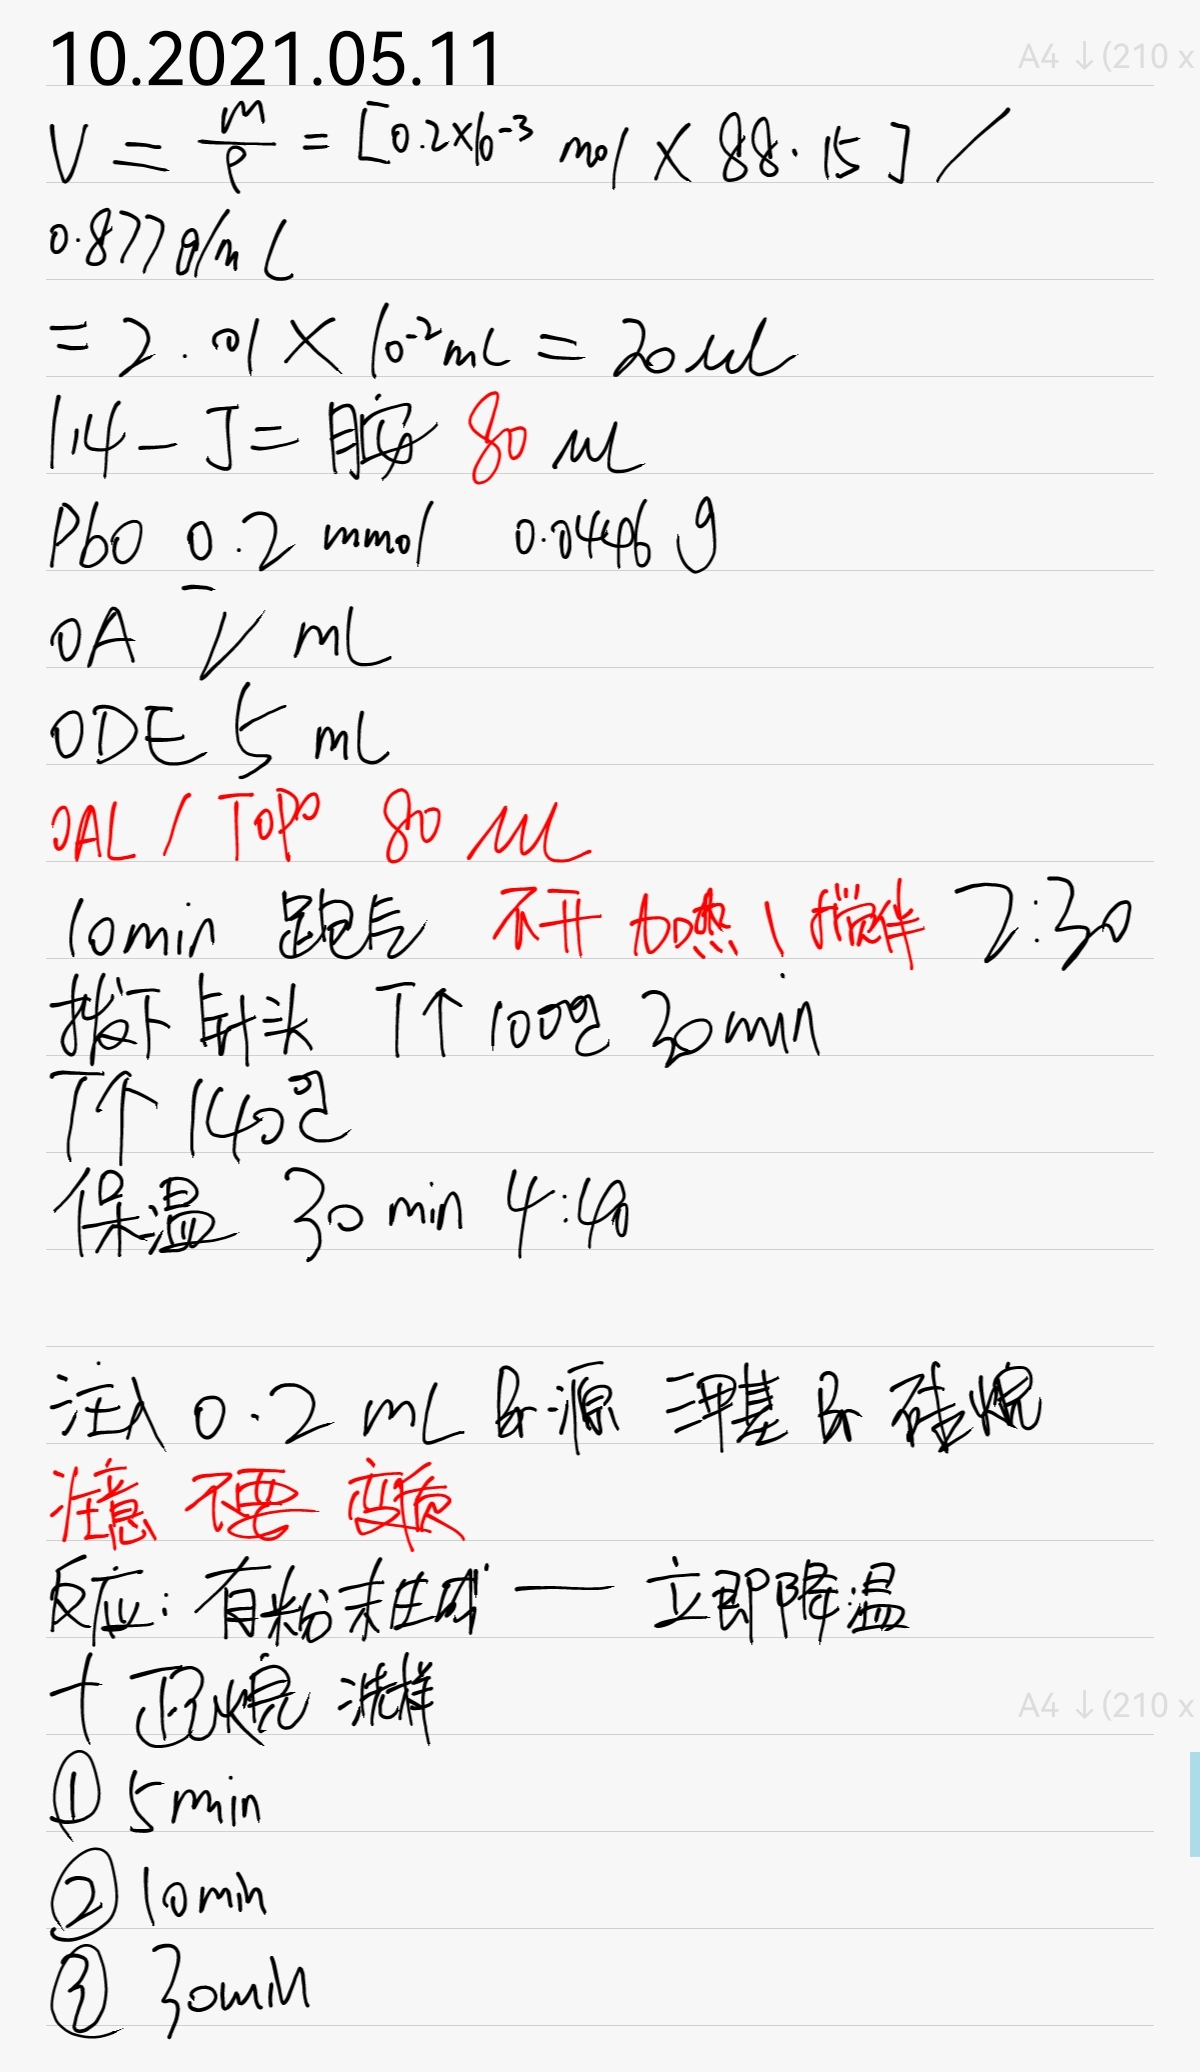 10.2021.05.11
A4 ↓(210 x
V = m/ρ = [0.2×10⁻³ mol × 88.15] /
0.877g/mL
= 2.01 × 10⁻²mL = 20μL
1,4-丁二胺 80 μL
PbO 0.2 mmol 0.0446 g
OA 1 mL
ODE 5 mL
OAL / TOPO 80 μL
10min 跑后 不开加热！搅拌 2:30
拔下针头 T↑ 100℃ 30min
T个 140℃
保温 30 min 4:40
注入 0.2 mL Br源 三甲基Br硅烷
注意 不要 变质
反应: 有粉末生成 — 立即降温
+ 正己烷 洗样
A4 ↓(210 x
① 5min
② 10min
③ 30min